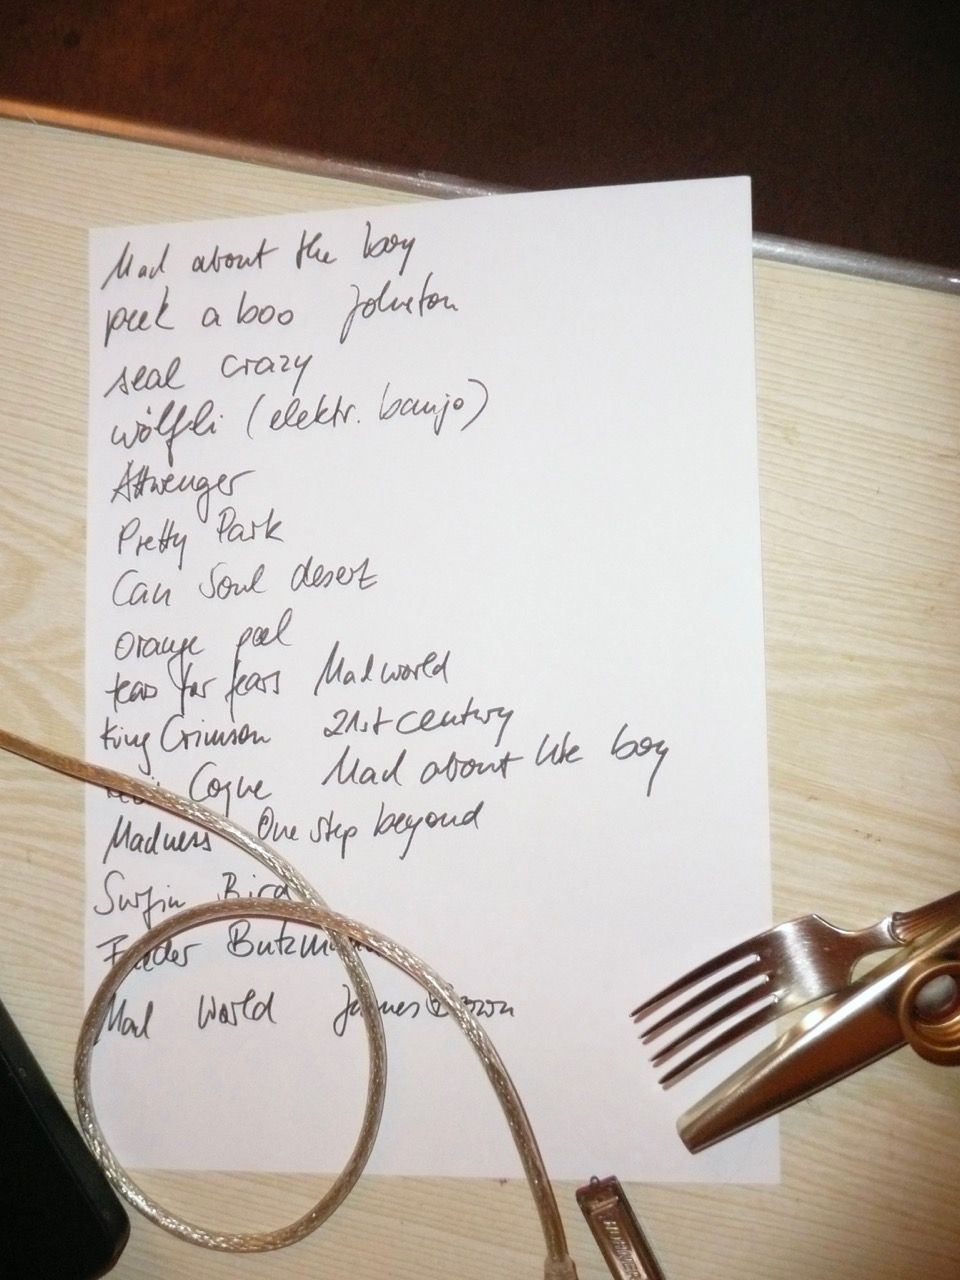 Mad about the boy
peek a boo Johnston
seal crazy
wölfli (elektr. banjo)
Attwenger
Pretty Park
Can Soul desert
orange peel
tears for fears Mad world
King Crimson 21st century
Coyne Mad about the boy
Madness One step beyond
Surfin Bird
Frieder Butzmann
Mad World James Brown
HOHNER